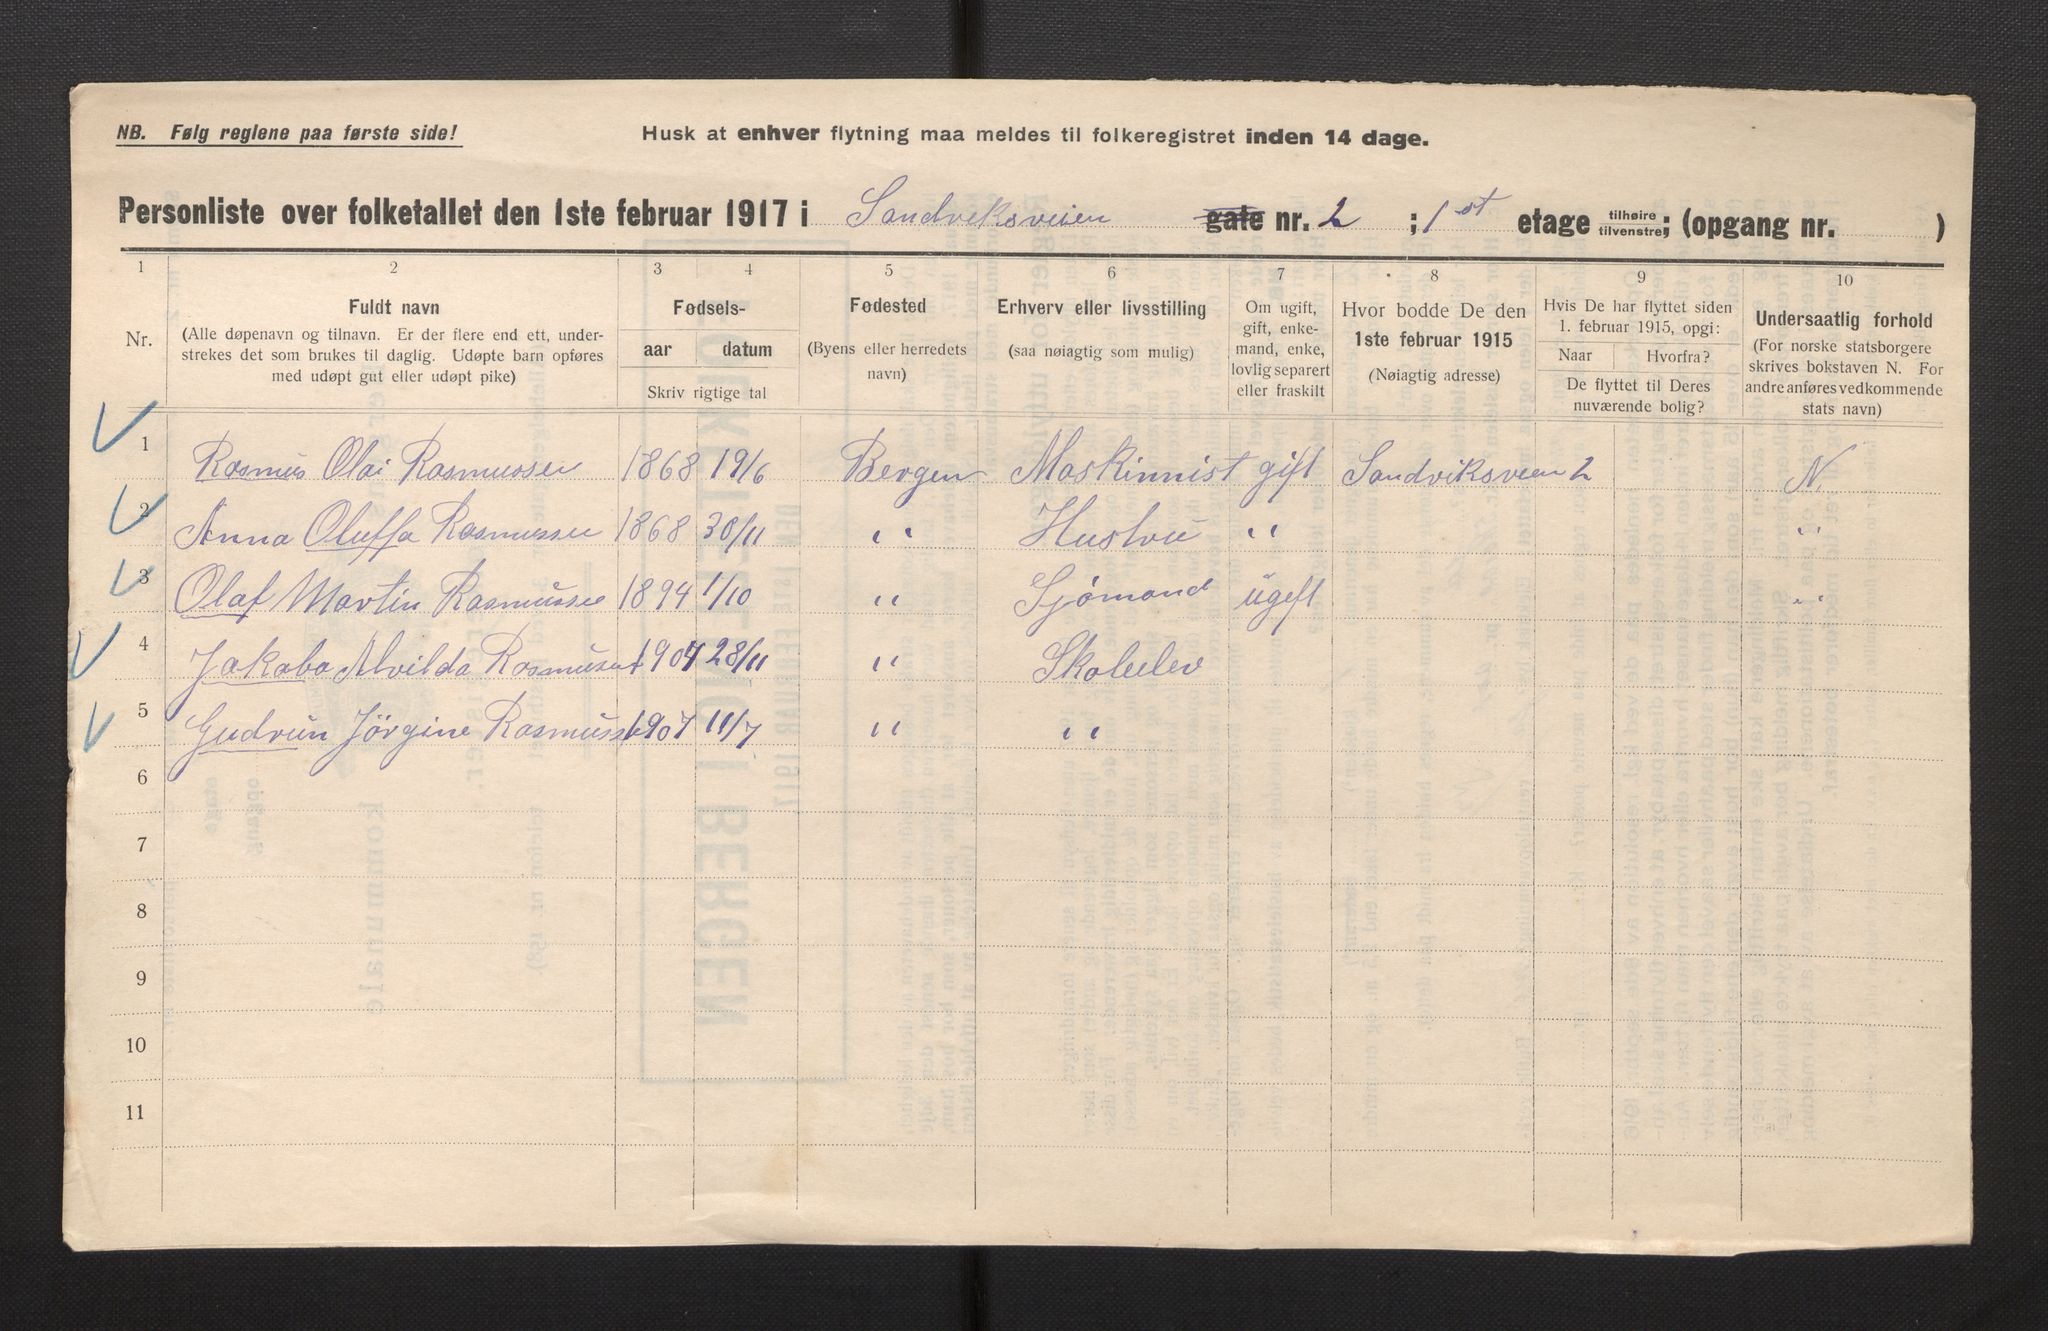 NB. Følg reglene paa første side!
Husk at enhver flytning maa meldes til folkeregistret inden 14 dage.
Personliste over folketallet den 1ste februar 1917 i Sandviksveien gate nr. 2 ; 1st etage tilhøire tilvenstre; (opgang nr. )
1 2 3 4 5 6 7 8 9 10
Nr.
Fuldt navn
(Alle døpenavn og tilnavn. Er der flere end ett, under-
strekes det som brukes til daglig. Udøpte barn opføres
med udøpt gut eller udøpt pike)
Fødsels-
aar datum
Skriv rigtige tal
Fødested
(Byens eller herredets
navn)
Erhverv eller livsstilling
(saa nøiagtig som mulig)
Om ugift,
gift, enke-
mand, enke,
lovlig separert
eller fraskilt
Hvor bodde De den
1ste februar 1915
(Nøiagtig adresse)
Hvis De har flyttet siden
1. februar 1915, opgi:
Naar Hvorfra?
De flyttet til Deres
nuværende bolig?
Undersaatlig forhold
(For norske statsborgere
skrives bokstaven N. For
andre anføres vedkommende
stats navn)
1 Rasmus Olai Rasmussen 1868 19/6 Bergen Maskinnist gift Sandviksveien 2 N.
2 Anna Oluffa Rasmussen 1868 30/11 " Hustru " "
3 Olaf Martin Rasmussen 1894 1/10 " Sjømand ugift "
4 Jakoba Alvilda Rasmussen 1904 28/11 " Skoleelev
5 Gudrun Jörgine Rasmussen 1907 11/7 " "
6
7
8
9
10
11